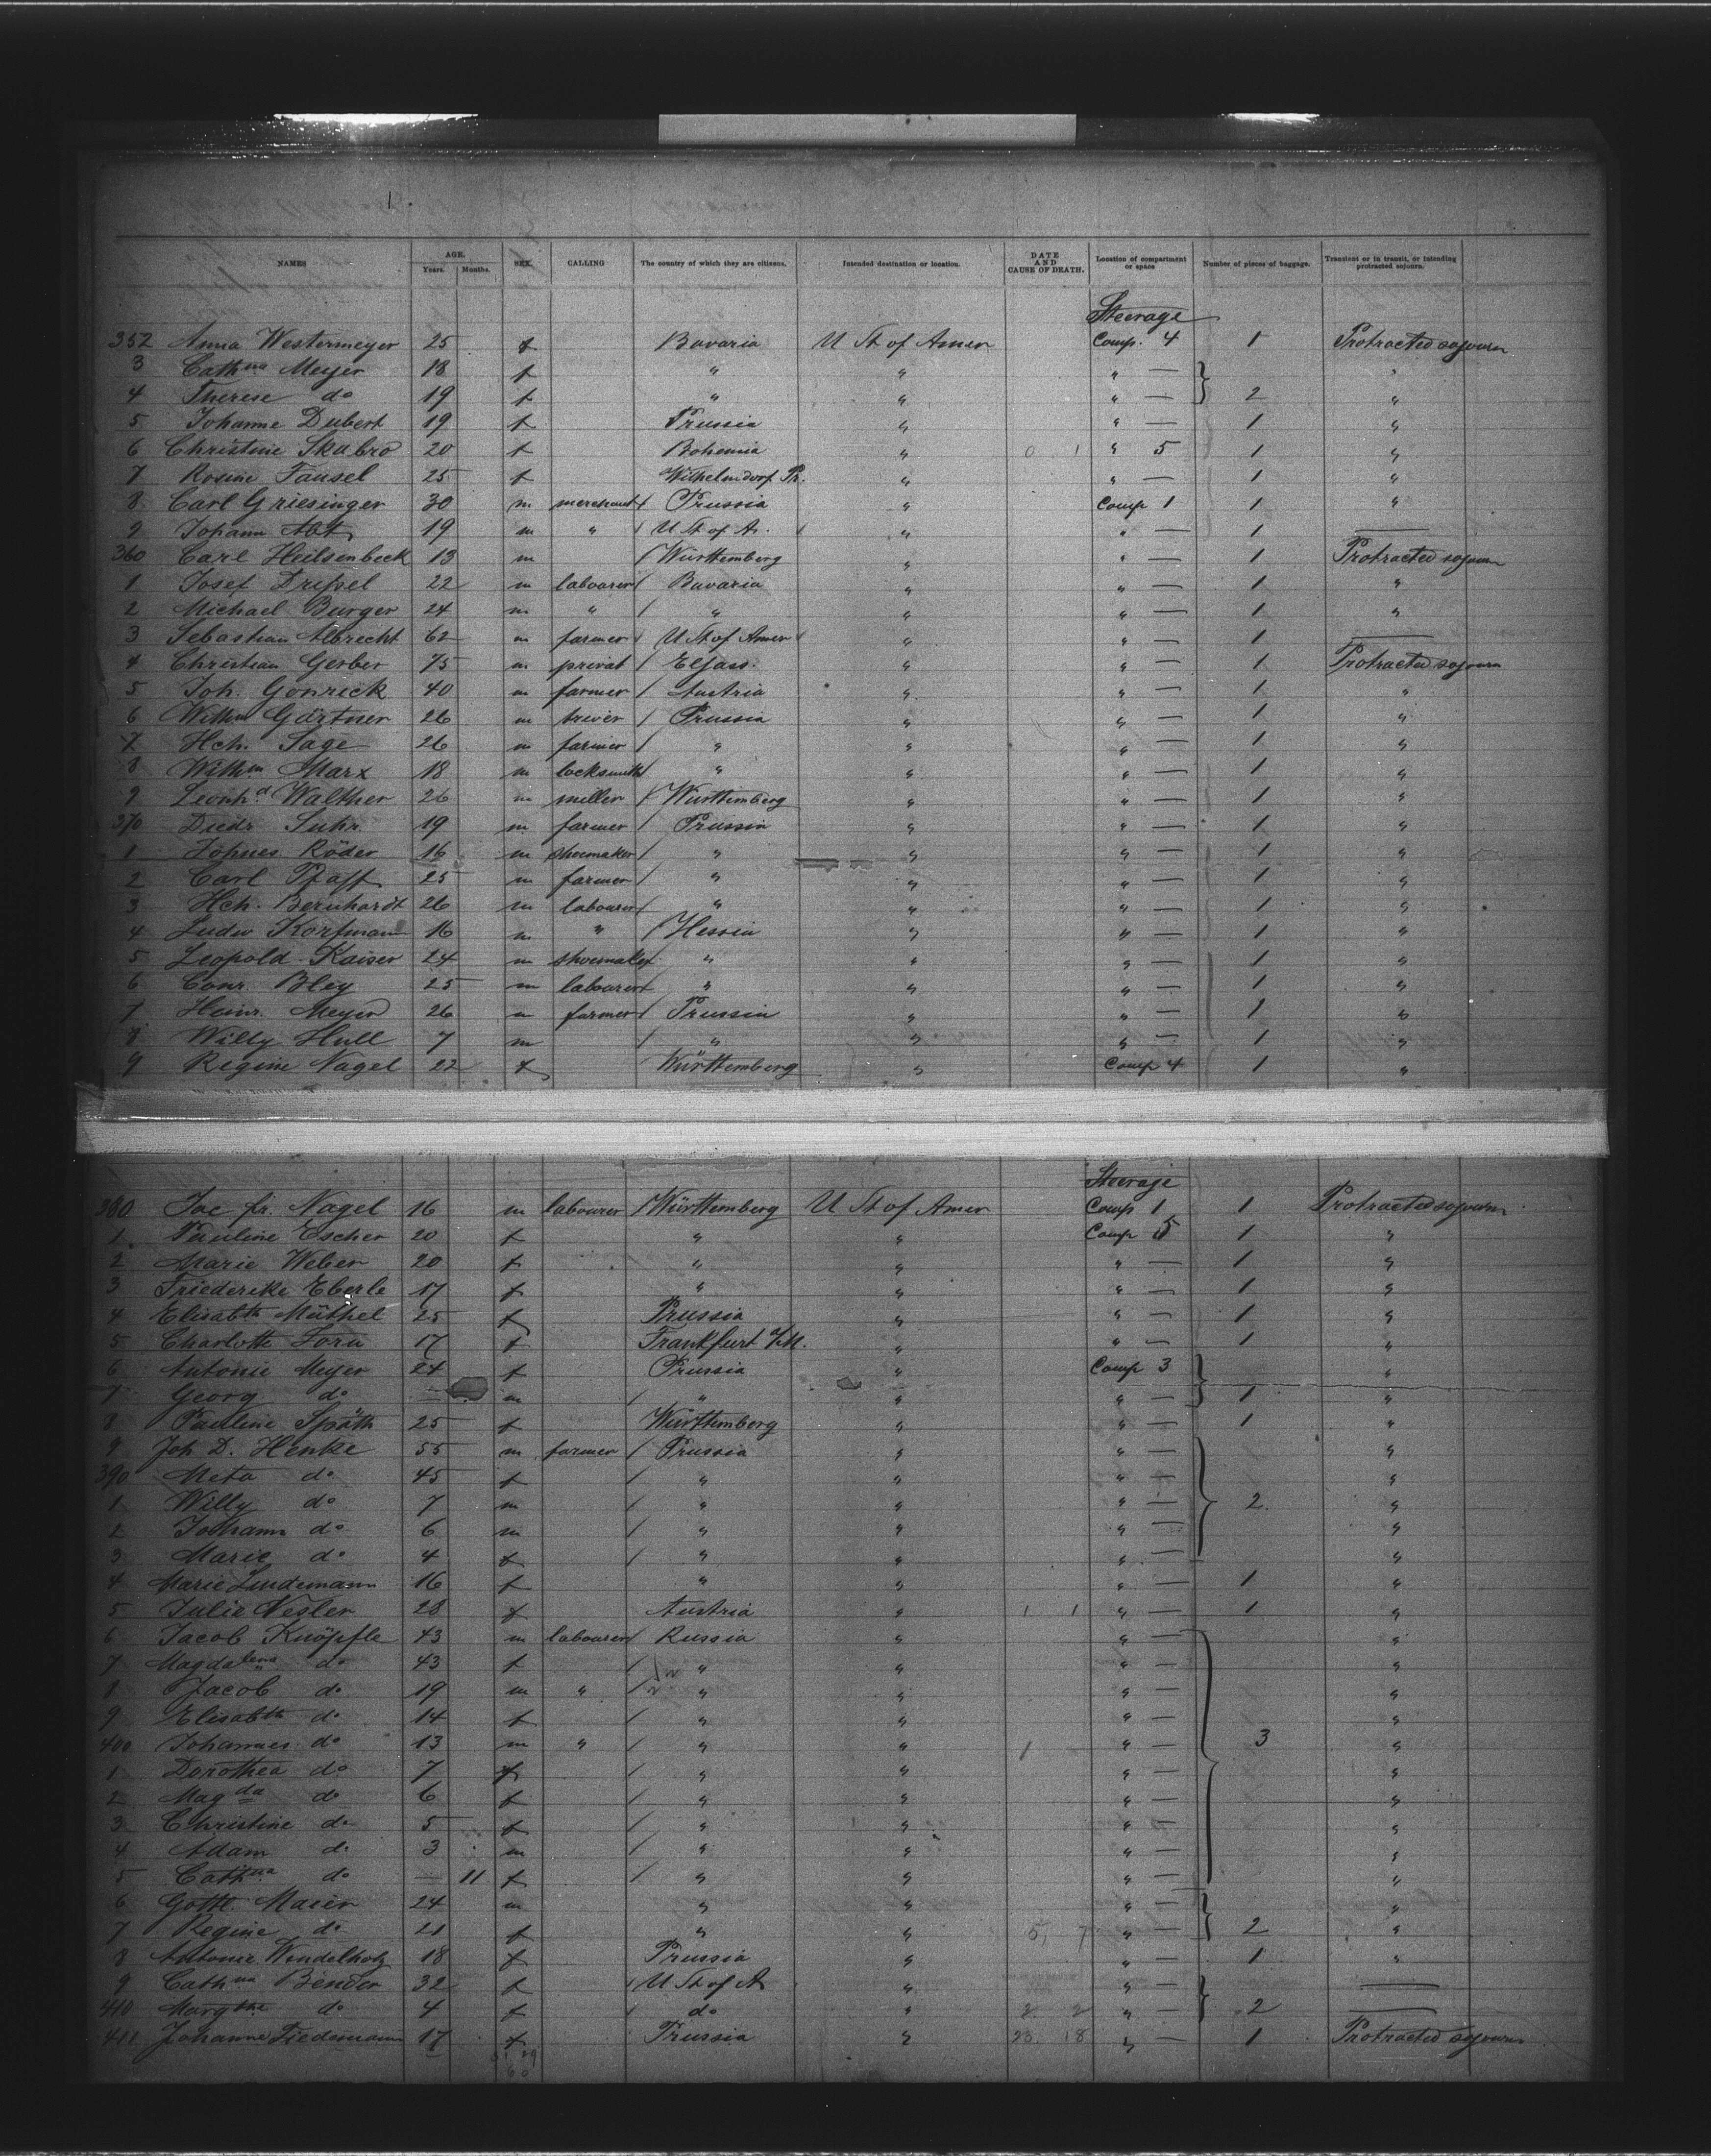 NAMES AGE. Years. Months. SEX. CALLING The country of which they are citizens. Intended destination or location. DATE AND CAUSE OF DEATH. Location of compartment or space Number of pieces of baggage. Transient or in transit, or intending protracted sojourn.
Steerage
352 Anna Westermeyer 25 f Bavaria U St of Amer Comp. 4 1 Protracted sojourn
3 Cathna Meyer 18 f " " " — "
4 Therese do 19 f " " " — 2 "
5 Johanne Dubert 19 f Prussia " " — 1 "
6 Christine Skabro 20 f Bohemia " 0 1 " 5 1 "
7 Rosine Fausel 25 f Wilhelmsdorf Pr. " " — 1 "
8 Carl Griesinger 30 m merchant Prussia " Comp 1 1 "
9 Johann Abt 19 m " U St of A. " " — 1 —
360 Carl Heilsenbeck 13 m Württemberg " " — 1 Protracted sojourn
1 Josef Drissel 22 m labourer Bavaria " " — 1 "
2 Michael Burger 24 m " " " " — 1 "
3 Sebastian Albrecht 62 m farmer U St of Amer " " — 1 —
4 Christian Gerber 75 m privat Elsass. " " — 1 Protracted sojourn
5 Joh. Gonrick 40 m farmer Austria " " — 1 "
6 Wilhm Gärtner 26 m Prussia " " — 1 "
7 Hch. Sage 26 m farmer " " " — 1 "
8 Wilhm Marx 18 m locksmith " " " — 1 "
9 Leonhd Walther 26 m miller Württemberg " " — 1 "
370 Diedr Suhr. 19 m farmer Prussia " " — 1 "
1 Johnes Röder 16 m shoemaker " " " — 1 "
2 Carl Pfaff 25 m farmer " " " — 1 "
3 Hch. Bernhardt 26 m labourer " " " — 1 "
4 Ludw Korfmann 16 m " Hessia " " — 1 "
5 Leopold Kaiser 24 m shoemaker " " " — 1 "
6 Conr. Bley 25 m labourer " " " — 1 "
7 Heinr. Meyer 26 m farmer Prussia " " — 1 "
8 Willy Hull 7 m " " " — 1 "
9 Regine Nagel 22 f Württemberg " Comp 4 1 "
Steerage
380 Jac fr. Nagel 16 m labourer Württemberg U St of Amer Comp 1 1 Protracted sojourn
1 Pauline Escher 20 f " " Comp 5 1 "
2 Marie Weber 20 f " " " — 1 "
3 Friederike Eberle 17 f " " " — 1 "
4 Elisabth Müthel 25 f Prussia " " — 1 "
5 Charlotte Forn 17 f Frankfurt a/M. " " — 1 "
6 Antonie Meyer 24 f Prussia " Comp 3 "
7 Georg do — m " " " — 1 "
8 Pauline Späth 25 f Württemberg " " — 1 "
9 Joh D. Henke 55 m farmer Prussia " " — "
390 Meta do 45 f " " " — "
1 Willy do 7 m " " " — 2 "
2 Johann do 6 m " " " — "
3 Marie do 4 f " " " — "
4 Marie Lindemann 16 f " " " — 1 "
5 Julie Nesler 28 f Austria " 1 1 " — 1 "
6 Jacob Knöpfle 43 m labourer Russia " " — "
7 Magdalena do 43 f " " " — "
8 Jacob do 19 m " " " " — "
9 Elisabth do 14 f " " " — "
400 Johannes do 13 m " " " 1 " — 3 "
1 Dorothea do 7 f " " " — "
2 Magda do 6 f " " " — "
3 Christine do 5 f " " " — "
4 Adam do 3 m " " " — "
5 Cathna do — 11 f " " " — "
6 Gottl. Maier 24 m " " " — "
7 Regine do 21 f " " 5, 7 " — 2 "
8 Antonie Windelholz 18 f Prussia " " — 1 "
9 Cathna Bender 32 f U St of A " " — —
410 Margthe do 4 f do " 2 2 " — 2 —
411 Johanne Tiedemann 17 f Prussia " 23. 18 " — 1 Protracted sojourn